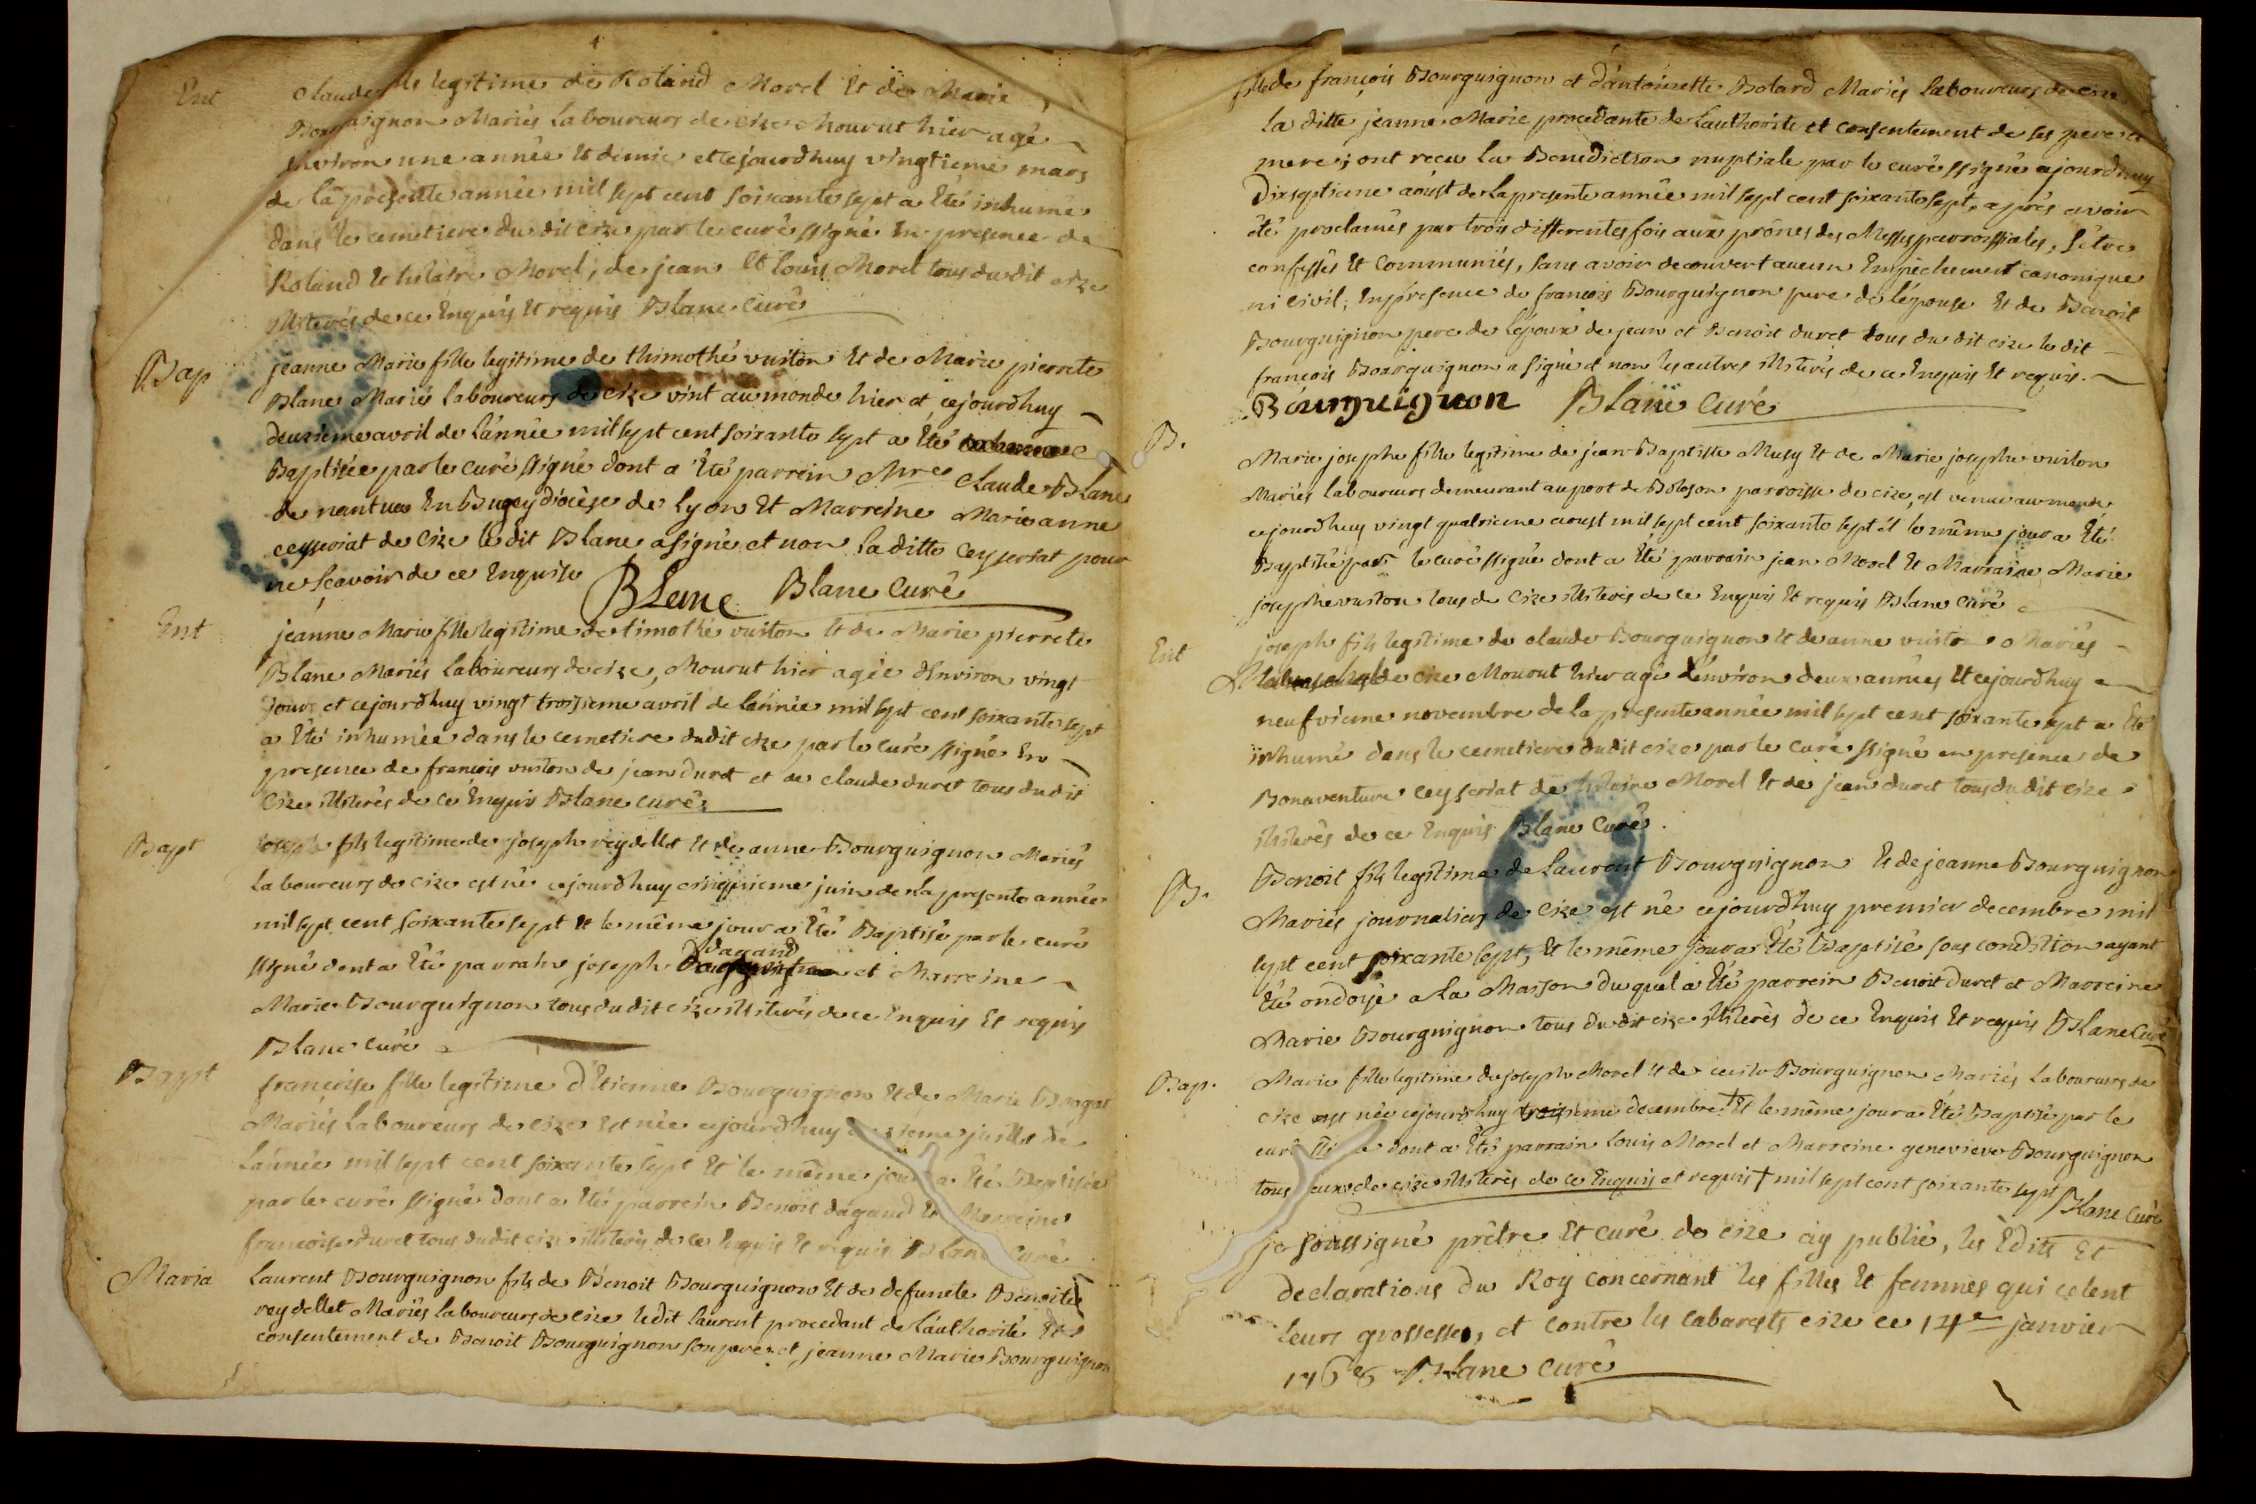 Ent
Claude fils legitime de Roland Morel Et de Marie
Bourguignon Mariés Laboureurs de Cize Mourut hier agé
Environ une année Et demie et cejourdhuy vingtieme mars
de la presente année mil sept cent soixante sept a Eté inhumé
dans le cemetiere du dit cize par le curé ssigné En presence de
Roland Et hilaire Morel, de jean Et louis Morel tous du dit cize
illiterés de ce Enquis Et requis Blanc Curé
Bap
jeanne Marie fille legitime de thimothé vuiton Et de Marie pierrete
Blanc Mariés Laboureurs de Cize vint au monde hier et cejourdhuy
deuxieme avril de lánnée mil sept cent soixante sept a Eté
Baptisée par le curé ssigné dont a Eté parrein Mre Claude Blanc
de nantua En Bugey diocèse de Lyon Et Marreine Marie anne
ceyseriat de Cize le dit Blanc a signé et non la ditte Ceyseriat pour
ne sçavoir de ce Enquise Blanc Blanc Curé
Ent
jeanne Marie fille legitime de timothé vuiton Et de Marie pierrete
Blanc Mariés Laboureurs de cize, Mourut hier agée dEnviron vingt
jours et cejourdhuy vingt troisieme avril de lánnée mil sept cent soixante sept
a Eté inhumée dans le cemetiere dudit cize par le curé ssigné En
presence de françois vuiton de jean duret et de claude duret tous du dit
Cize illiterés de ce Enquis Blanc curé
Bapt
joseph fils legitime de joseph reydellet Et de anne Bourguignon Mariés
Laboureurs de Cize est né cejourdhuy cinquieme juin de la presente année
mil sept cent soixante sept Et le même jour a Eté Baptisé par le curé
dagand
ssigné dont a Eté parrain joseph et Marreine
Marie Bourguignon tous du dit cize illiterés de ce Enquis Et requis
Blanc curé
Bapt
françoise fille legitime dEtienne Bourguignon Et de Marie
Mariés Laboureurs de cize Est née cejourdhuy juillet de
Lánnée mil sept cent soixante sept Et le même jour a Eté Baptisée
par le curé ssigné dont a Eté parrein Benoit dagand Et Marreine
francoise duret tous du dit cize illiterés de ce Enquis Et requis Blanc Curé
Maria
Laurent Bourguignon fils de Benoit Bourguignon Et de defuncte Benoite
reydellet Mariés laboureurs de cize ledit laurent procedant de láuthorité Et
consentement de Benoit Bourguignon son pere et jeanne Marie Bourguignon
fille de françois Bourguignon et dántoinette Bolard Mariés laboureurs de cize
la ditte jeanne Marie procedante de láuthorité et consentement de ses pere et
mere; ont reçu la Benediction nuptiale par le curé ssigné cejourdhuy
dixseptieme aóust de la presente année mil sept cent soixante sept, après avoir
été proclamés par trois differentes fois aux prônes des Messes parroissiales, sêtre
confessés Et Communiés, sans avoir decouvert aucun Empèchement canonique
ni civil; En presence de françois Bourguignon pere de lépouse Et de Benoit
Bourguignon pere de lépoux de jean et Benoit duret tous du dit cize le dit
françois Bourguignon a signé et non les autres illiterés de ce Enquis Et requis.
Bourguignon Blanc Curé
B.
Marie josephe fille legitime de jean Baptiste Musy Et de Marie josephe vuiton
Mariés laboureurs demeurant au port de Bolozon parroisse de cize, est venue au monde
cejourdhuy vingt quatrieme aoust mil sept cent soixante sept et le même jour a Eté
Baptisée par le curé ssigné dont a Eté parrain jean Morel Et Marraine Marie
josephe vuiton tous de Cize illiterés de ce Enquis Et requis Blanc Curé
Ent
joseph fils legitime de claude Bourguignon Et de anne vuiton Mariés
de cize Mourut hier agé dénviron deux années Et cejourdhuy
neufvieme novembre de la presente année mil sept cent soixante sept a Eté
inhumé dans le cemetiere dudit cize par le Curé ssigné en presence de
Bonaventure ceyseriat de hilaire Morel Et de jean duret tous du dit cize
illiterés de ce Enquis Blanc Curé.
B.
Benoit fils legitime de laurent Bourguignon Et de jeanne Bourguignon
Mariés journaliers de Cize est né cejourdhuy premier decembre mil
sept cent soixante sept, Et le même jour a Eté Baptisé sous condition ayant
Eté ondoyé a la Maison du quel a Eté parrein Benoit Duret et Marreine
Marie Bourguignon tous du dit cize illiterés de ce Enquis Et requis Blanc Curé
Bap.
Marie fille legitime de joseph Morel Et de cecile Bourguignon Mariés Laboureurs de
cize est née cejourdhuy troisieme decembre † Et le même jour a Eté Baptisée par le
curé dont a Eté parrain louis Morel et Marreine genevieve Bourguignon
tous deux de cize illiterés de ce Enquis et requis † mil sept cent soixante sept Blanc Curé
je soussigné prêtre Et curé de cize ay publié, les Edits Et
declarations du Roy concernant les filles Et femmes qui celent
leurs grossesses, et contre les cabarests cize ce 14e janvier
1768 Blanc Curé